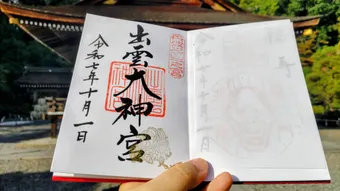 出雲大神宮
令和七年十月一日